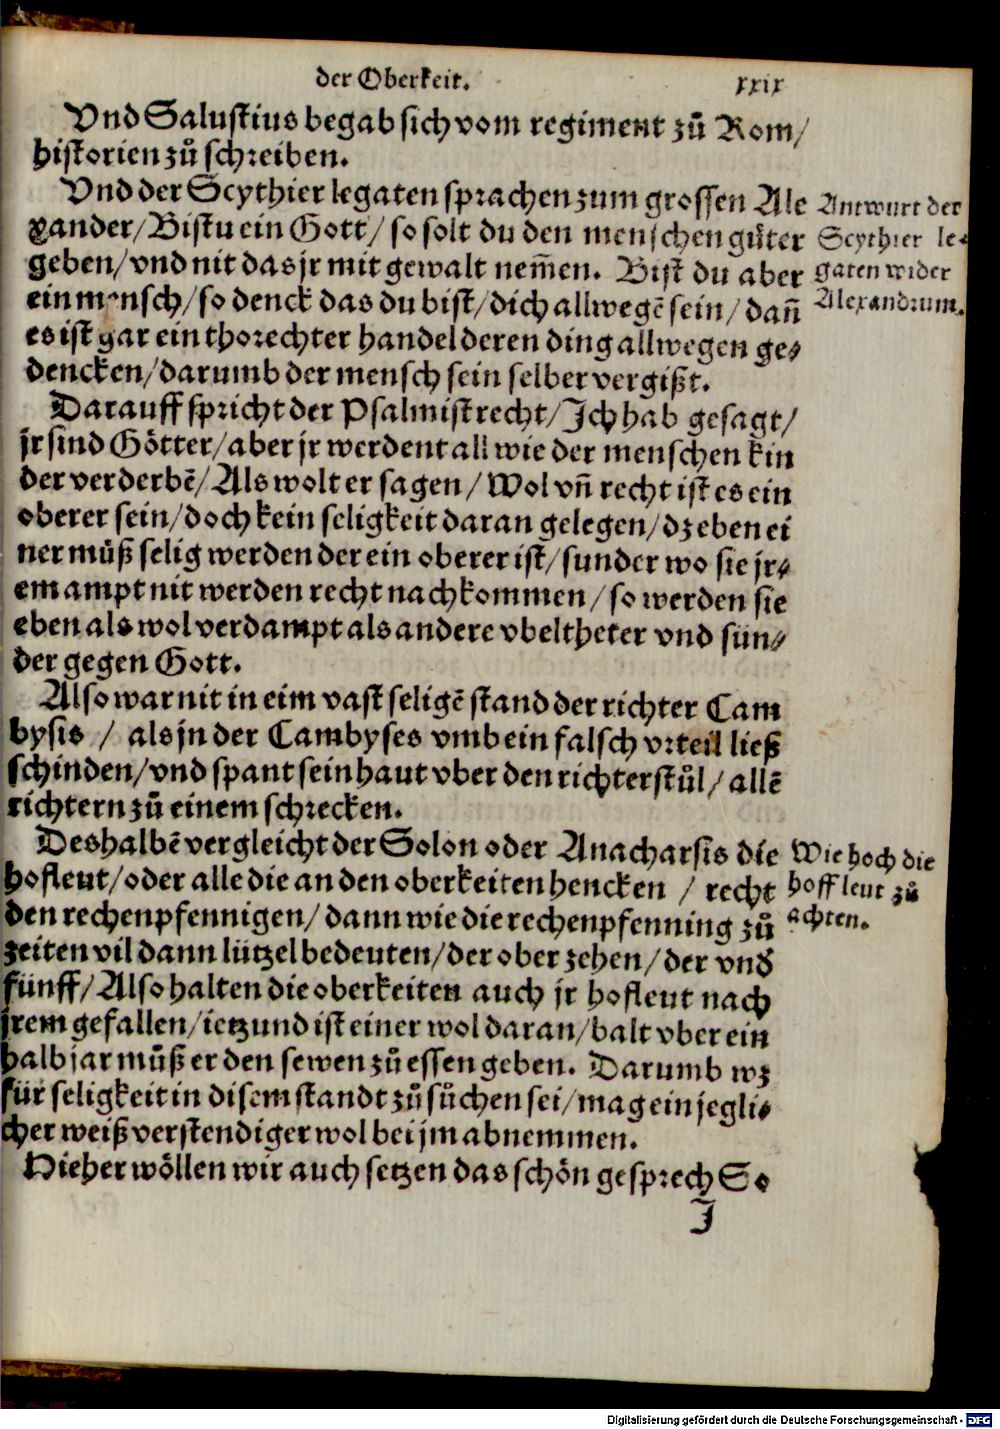 der Oberkeit.
xxix
Vnd Salustius begab sich vom regiment zů Rom/
historien zů schreiben.
Vnd der Scythier legaten sprachen zum grossen Ale
xander/ Bistu ein Gott/ so solt du den menschen gůter
geben/ vnd nit das jr mit gewalt nem̃en. Bist du aber
ein mensch/ so denck das du bist/ dich allwegẽ sein/ dañ
es ist gar ein thorechter handel deren ding allwegen ge⸗
dencken/ darumb der mensch sein selber vergißt.
Antwurt der
Scythier le⸗
gaten wider
Alexandrum.
Darauff spricht der Psalmist recht/ Ich hab gesagt/
jr sind Götter/ aber jr werdent all wie der menschen kin
der verderbẽ/ Als wolt er sagen/ Wol vñ recht ist es ein
oberer sein/ doch kein seligkeit daran gelegen/ dz eben ei
ner můß selig werden der ein oberer ist/ sunder wo sie jr⸗
em ampt nit werden recht nachkommen/ so werden sie
eben als wol verdampt als andere vbeltheter vnd sün⸗
der gegen Gott.
Also war nit in eim vast seligẽ stand der richter Cam
bysis / als jn der Cambyses vmb ein falsch vrteil ließ
schinden/ vnd spant sein haut vber den richterstůl/ allẽ
richtern zů einem schrecken.
Deshalbẽ vergleicht der Solon oder Anacharsis die
hofleut/ oder alle die an den oberkeiten hencken / recht
den rechenpfennigen/ dann wie die rechenpfenning zů
zeiten vil dann lützel bedeuten/ der ober zehen/ der vnd
fünff/ Also halten die oberkeiten auch jr hofleut nach
jrem gefallen/ ietzund ist einer wol daran/ balt vber ein
halb jar můß er den sewen zů essen geben. Darumb wz
für seligkeit in disem standt zů sůchen sei/ mag ein jegli⸗
cher weiß verstendiger wol bei jm abnemmen.
Wie hoch die
hoffleut zů
achten.
Hieher wöllen wir auch setzen das schön gesprech So
I
Digitalisierung gefördert durch die Deutsche Forschungsgemeinschaft - DFG